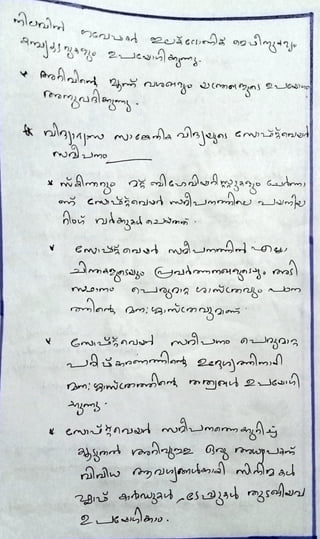 നിലവിന് ഗവേഷകർ ഇലക്ട്രോണിക് മെഷീനുകളും
കമ്പ്യൂട്ടറുകളും ഉപയോഗിക്കുന്നു.
* അറിവിന്റെ മൂന്ന് വശങ്ങളും യന്ത്രങ്ങളുടെ ഉപയോഗം
അനുവദിക്കുന്നു.
* വിദ്യാഭ്യാസ സാങ്കേതിക വിദ്യയുടെ സോഫ്റ്റ്‌വെയർ
സമീപനം
* സ്കിന്നറും മറ്റ് ബിഹേവിയറിസ്റ്റുകളും ചേർന്നാ
ണ് സോഫ്റ്റ്‌വെയർ സമീപനത്തിലെ പയനിയ
റിംഗ് വർക്കുകൾ ചെയ്തത്.
* സോഫ്റ്റ്‌വെയർ സമീപനത്തിന് എല്ലാ
ചിന്തകളുടെയും പ്രവർത്തനങ്ങളുടെയും അടി
സ്ഥാനം പെരുമാറ്റ ശാസ്ത്രവും പഠന
ത്തിന്റെ മന:ശാസ്ത്രവുമാണ്.
* സോഫ്റ്റ്‌വെയർ സമീപനം പെരുമാറ്റ
പരിഷ്കരണത്തിന്റെ ഉദ്ദേശ്യത്തിനായി
മന:ശാസ്ത്രത്തിന്റെ തത്വങ്ങൾ ഉപയോഗി
ക്കുന്നു.
* സോഫ്റ്റ്‌വെയർ സമീപനത്തെക്കുറിച്ച്
കൂടുതൽ അറിവുള്ള ഒരു അധ്യാപകന്
വിവിധ ആവശ്യങ്ങൾക്കായി സിനിമകൾ
ഫ്ലാഷ് കാർഡുകൾ, ടേപ്പുകൾ തുടങ്ങിയവ
ഉപയോഗിക്കാം.